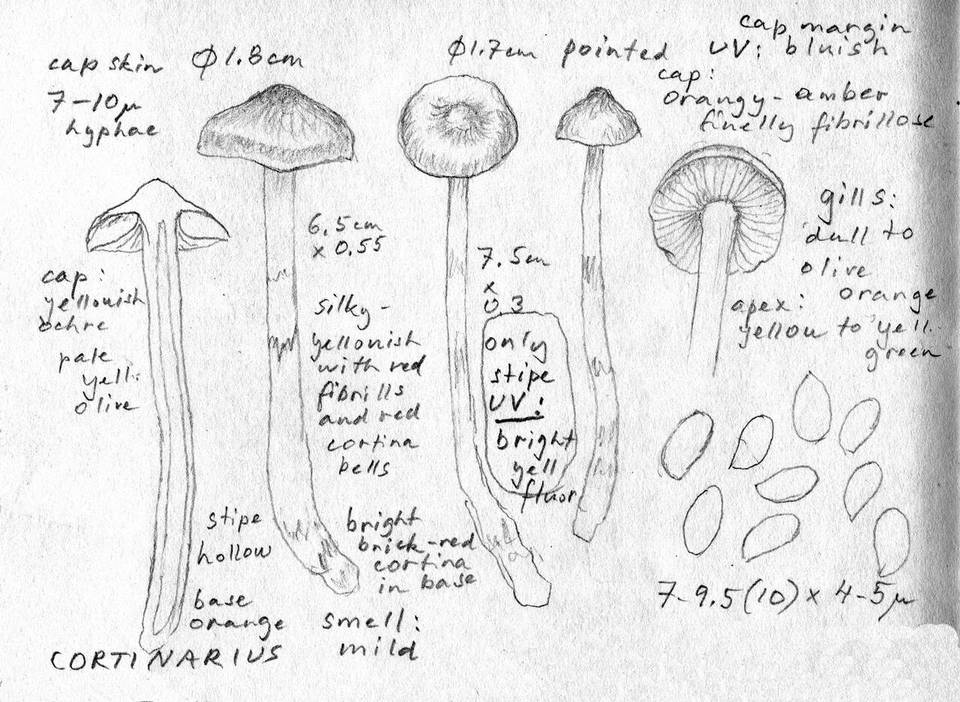 cap skin
7-10μ
hyphae
Ø1.8cm
Ø1.7cm pointed
cap margin
UV: bluish
cap:
orangy-amber
finelly fibrillose
6,5cm
x 0,55
7.5cm
x
0,3
gills:
dull to
olive
orange
apex:
yellow to yell.
green
cap:
yellowish
ochre
pale
yell.
olive
silky-
yellowish
with red
fibrills
and red
cortina
bells
only
stipe
UV:
bright
yell
fluor
stipe
hollow
base
orange
bright
brick-red
cortina
in base
smell:
mild
7-9.5(10) x 4-5μ
CORTINARIUS